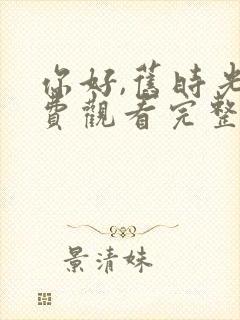 你好,舊時光
費觀看完整
景清妹